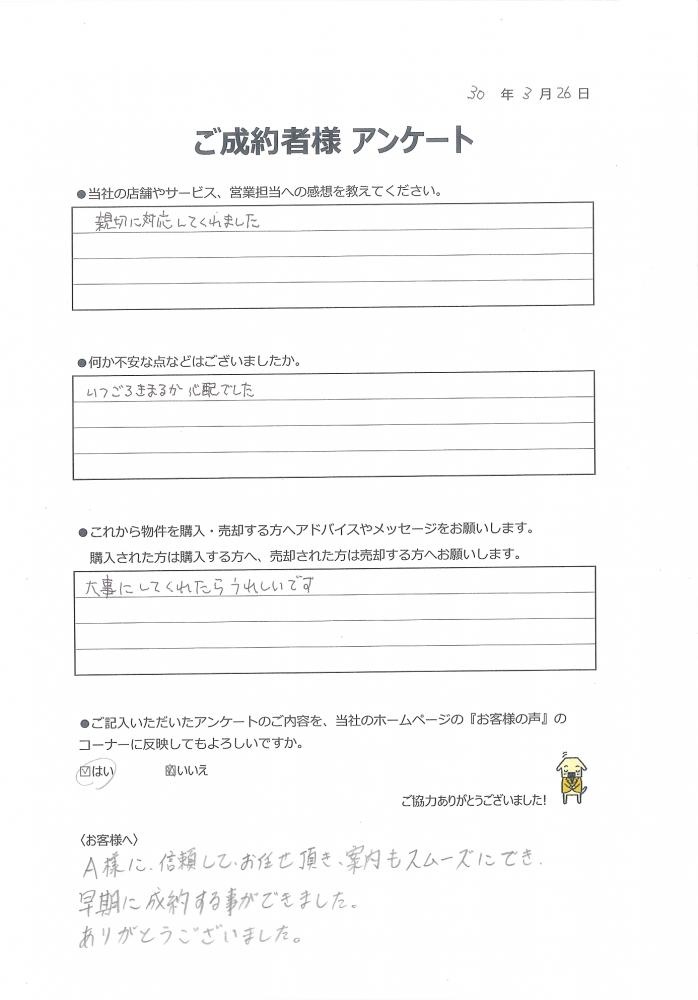 30 年 3 月 26 日
ご成約者様 アンケート
●当社の店舗やサービス、営業担当への感想を教えてください。
親切に対応してくれました
●何か不安な点などはございましたか。
いつごろきまるか心配でした
●これから物件を購入・売却する方へアドバイスやメッセージをお願いします。
購入された方は購入する方へ、売却された方は売却する方へお願いします。
大事にしてくれたらうれしいです
●ご記入いただいたアンケートのご内容を、当社のホームページの『お客様の声』の
コーナーに反映してもよろしいですか。
☑はい ☒いいえ
ご協力ありがとうございました!
〈お客様へ〉
A様に、信頼して、お任せ頂き、案内もスムーズにでき、
早期に成約する事ができました。
ありがとうございました。